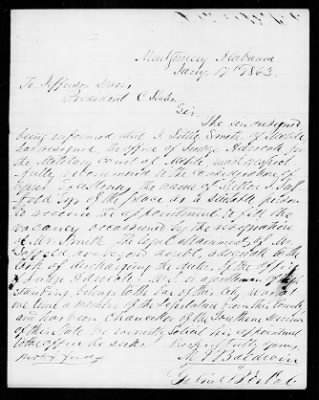 Montgomery Alabama
Jany 17th 1863.
To Jefferson Davis,
President C. States
Sir
The undersigned
being informed that S. Smith of Mobile
has resigned the office of Judge Advocate for
the Military Court at Mobile, most respect
fully recommend to the consideration of
your Excellency the name of Milton J. Saf
fold Esqr of this place as a suitable person
to receive the appointment to fill the
vacancy occasioned by the resignation
of Mr. Smith. The legal attainments of Mr.
Saffold are beyond doubt, adequate to the
task of discharging the duties of the office
of Judge Advocate. Mr. S. is a gentleman of high
standing, belongs to the bar of this city, was at
one time a member of the Legislature from this County,
and has been Chancellor of the Southern Division
of this State. We earnestly solicit his appointment
to the office he seeks.
Respectfully yours,
M. A. Baldwin
John